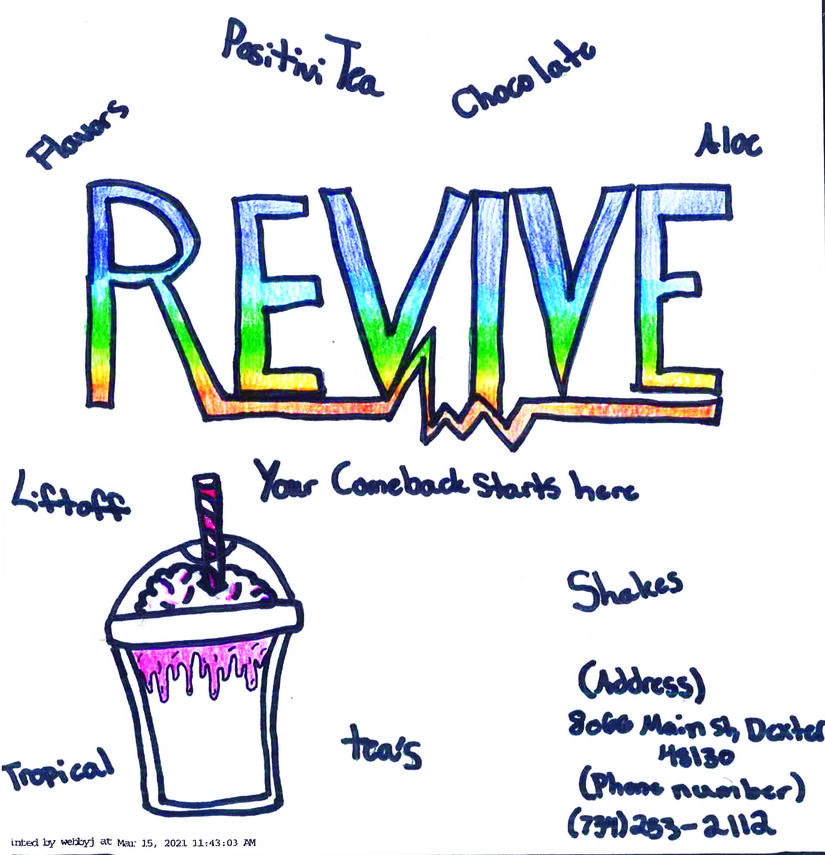 Positivi Tea
Chocolate
Flavors
Aloe
REVIVE
Liftoff
Your Comeback Starts here
Shakes
(Address)
8066 Main St, Dexter
48130
(Phone number)
(734) 253-2112
Tropical
tea's
inted by webbyj at Mar 15, 2021 11:43:03 AM